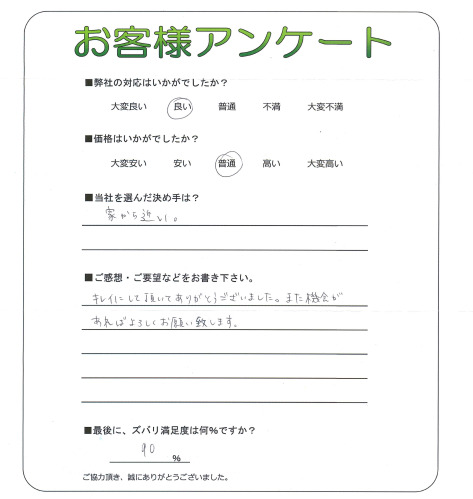 お客様アンケート
■弊社の対応はいかがでしたか？
大変良い 良い 普通 不満 大変不満
■価格はいかがでしたか？
大変安い 安い 普通 高い 大変高い
■当社を選んだ決め手は？
家から近い。
■ご感想・ご要望などをお書き下さい。
キレイにして頂いてありがとうございました。また機会が
あればよろしくお願い致します。
■最後に、ズバリ満足度は何%ですか？
90 %
ご協力頂き、誠にありがとうございました。